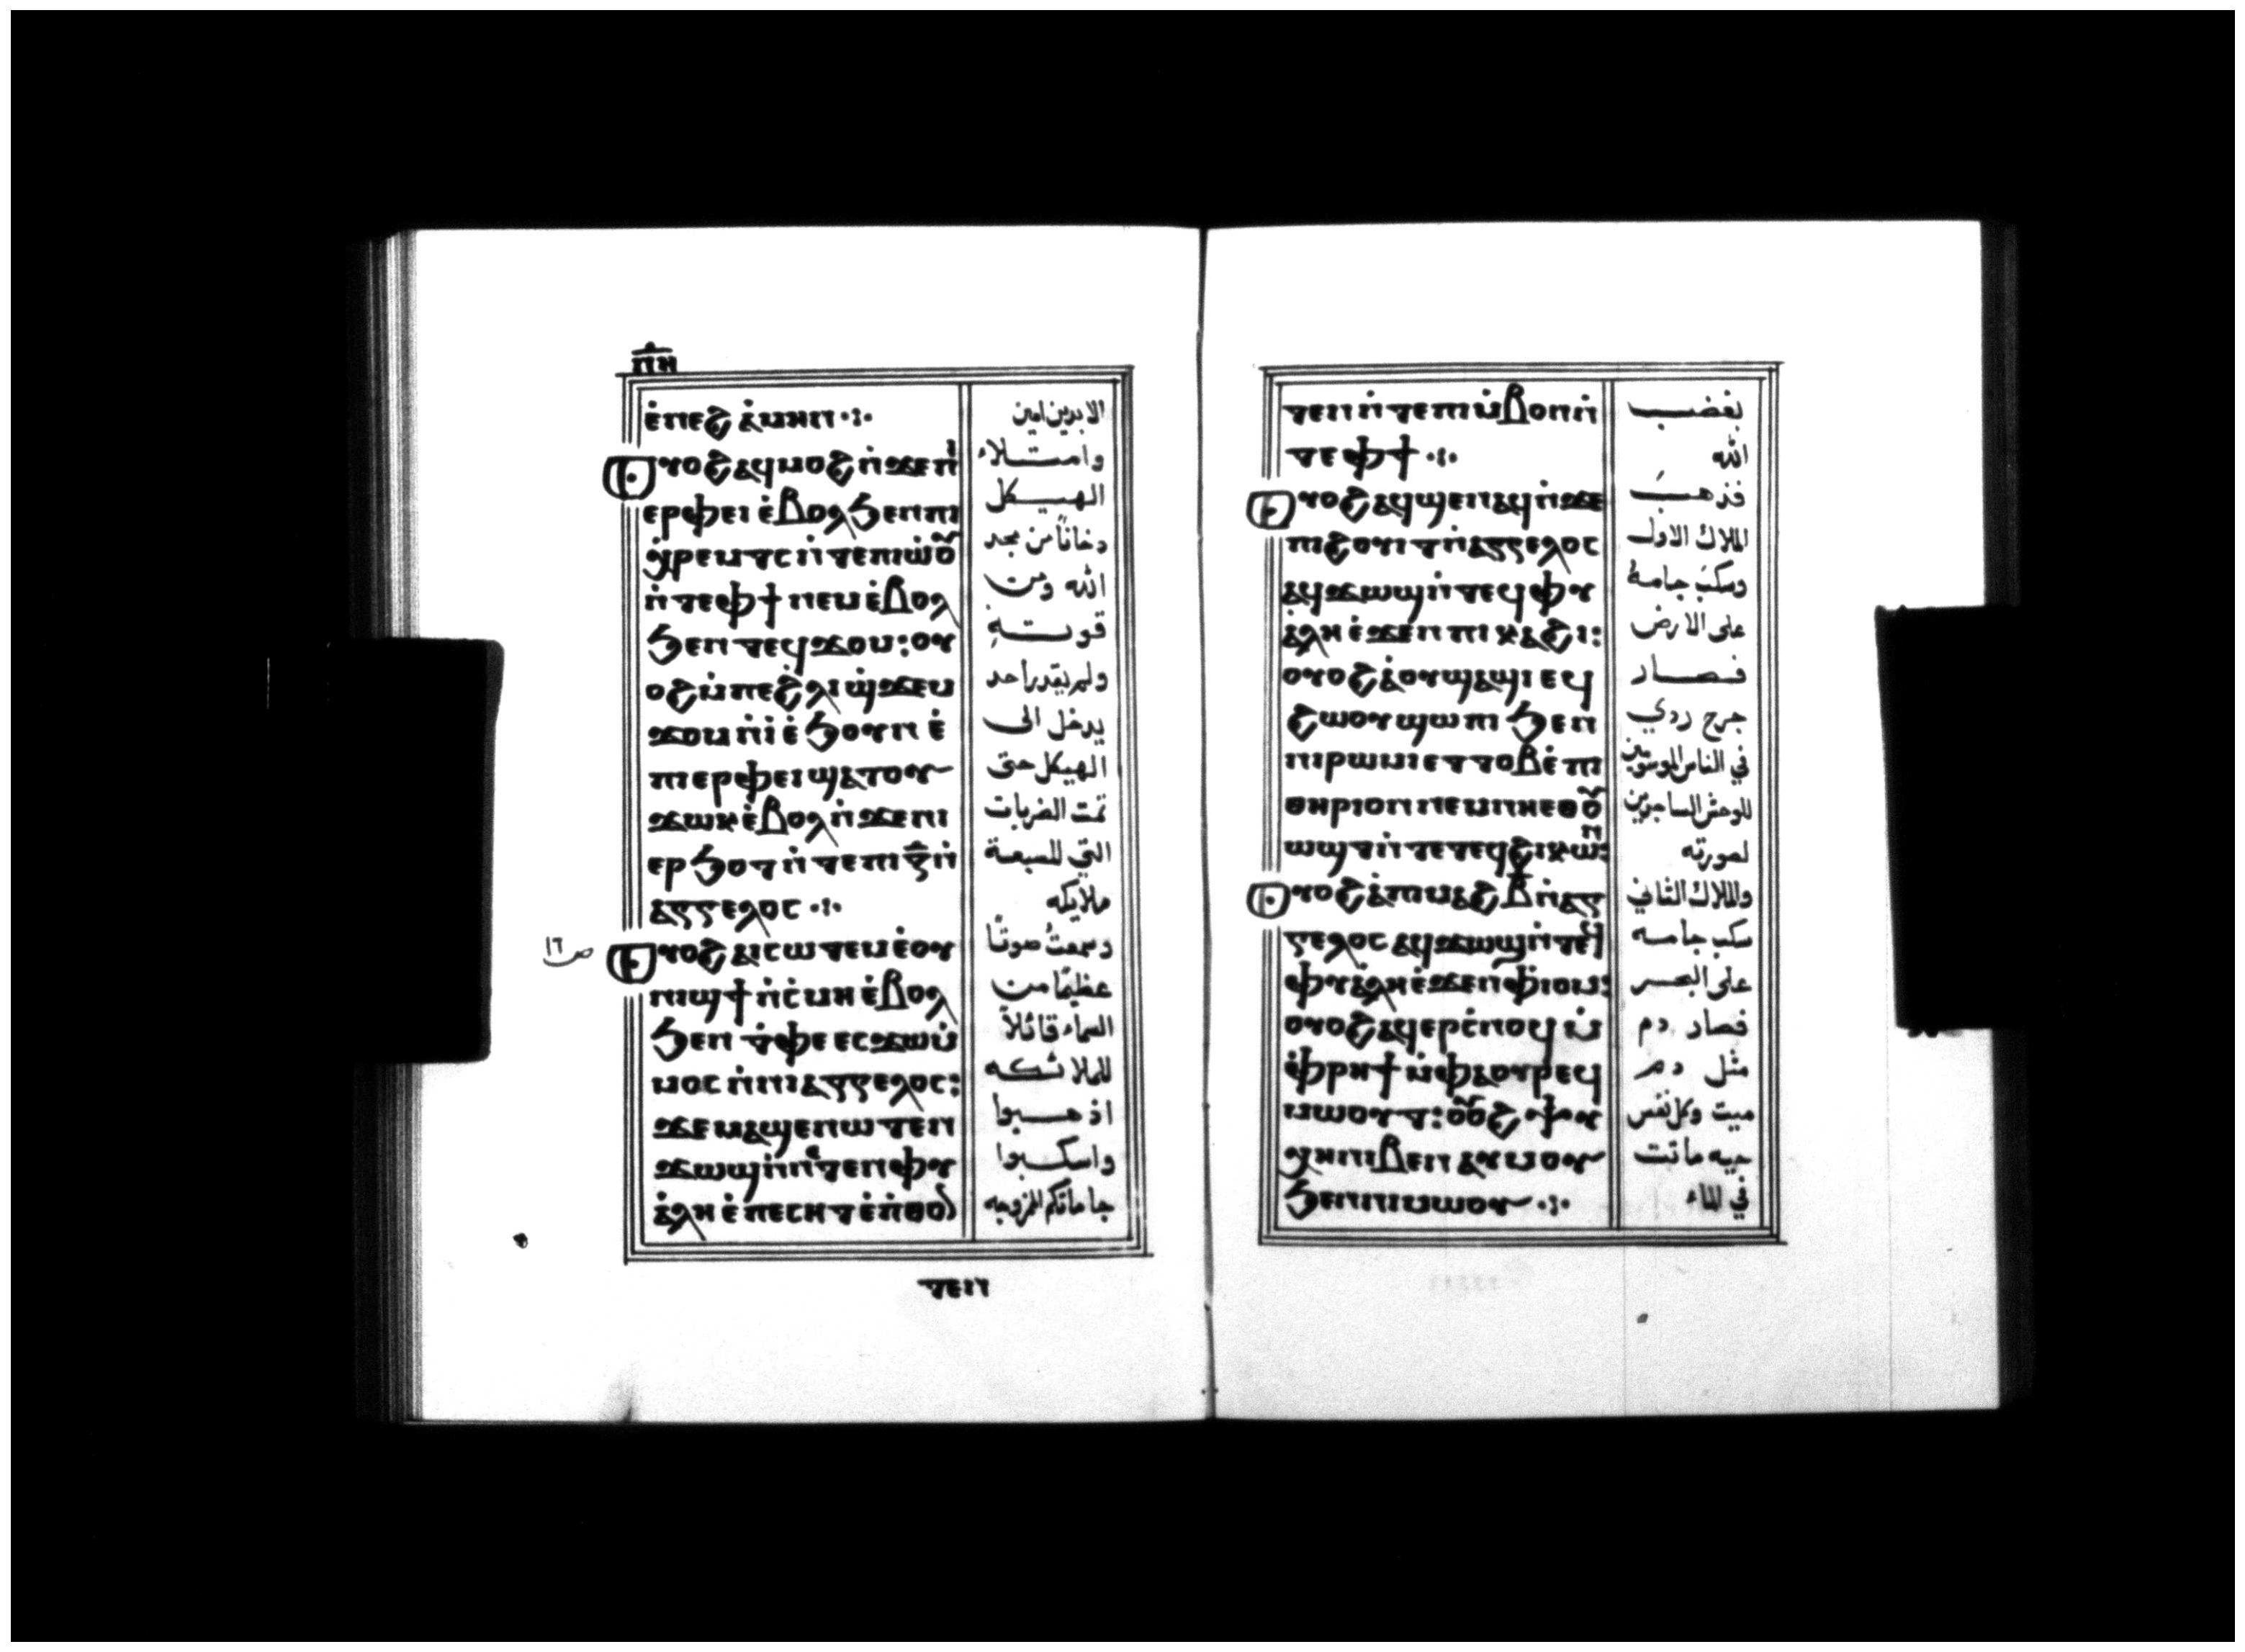 ⲡ̅ⲏ̅
ⲉ̀ⲛⲉϩ ⲁ̀ⲙⲏⲛ ⲁ·⁘
ⲟⲩⲟϩ ⲁϥⲙⲟϩ ⲛ̀ϫⲉⲡⲓ
ⲉⲣⲫⲉⲓ ⲉ̀ⲃⲟⲗ ϧⲉⲛⲡⲓ
ⲭ̀ⲣⲉⲙⲧⲥ ⲛ̀ⲧⲉⲡⲓⲱ̀ⲟⲩ
ⲛ̀ⲧⲉⲫϯ ⲛⲉⲙ ⲉ̀ⲃⲟⲗ
ϧⲉⲛ ⲧⲉϥϫⲟⲙ: ⲟⲩ
ⲟϩ ⲙ̀ⲡⲉϩⲗⲓ ϣ̀ϫⲉⲙ
ϫⲟⲙ ⲛ̀ⲓ̀ ⲉ̀ϧⲟⲩⲛ ⲉ̀
ⲡⲓⲉⲣⲫⲉⲓ ϣⲁⲧⲟⲩ
ϫⲱⲕ ⲉ̀ⲃⲟⲗ ⲛ̀ϫⲉⲛⲓ
ⲉⲣϧⲟⲧ ⲛ̀ⲧⲉⲡⲓⲍ̅ ⲛ̀
ⲁⲅⲅⲉⲗⲟⲥ ⁘
ⲟⲩⲟϩ ⲁⲓⲥⲱⲧⲉⲙ ⲉ̀ⲟⲩ
ⲛⲓϣϯ ⲛ̀ⲥ̀ⲙⲏ ⲉ̀ⲃⲟⲗ
ϧⲉⲛ ⲧ̀ⲫⲉ ⲉⲥϫⲱ ⲙ̀
ⲙⲟⲥ ⲛ̀ⲛⲓⲁⲅⲅⲉⲗⲟⲥ:
ϫⲉ ⲙⲁϣⲉⲛⲱⲧⲉⲛ
ϫⲱϣ ⲛ̀ⲛⲉⲧⲉⲛⲫⲩ
ⲁ̀ⲗⲏ ⲉ̀ⲡⲉⲥⲏⲧ ⲉ̀ⲙ̀ⲑⲟ
ⲧⲉⲛ
الابدين امين
وامتلاء
الهيكل
دخانًا من مجد
الله ومن
قوته
ولم يقدر احد
يدخل الى
الهيكل حتى
تمت الضربات
التي للسبعة
ملايكه
وسمعتُ صوتًا
عظيمًا من
السماء قائلاً
للملائكه
اذهبوا
واسكبوا
جاماتكم المزوجه
ص١٦
ⲧⲉⲛ ⲛ̀ⲧⲉ ⲡⲓⲙ̀ⲃⲟⲛ ⲛ̀
ⲧⲉⲫϯ ⁘
ⲟⲩⲟϩ ⲁϥϣⲉⲛⲁϥ ⲛ̀ϫⲉ
ⲡⲓϩⲟⲩⲓⲧ ⲛ̀ⲁⲅⲅⲉⲗⲟⲥ
ⲁϥϫⲱϣ ⲛ̀ⲧⲉϥⲫⲩ
ⲁ̀ⲗⲏ ⲉ̀ϫⲉⲛ ⲡⲓⲕⲁϩⲓ:
ⲟⲩⲟϩ ⲁ̀ⲟⲩϣⲁϣⲓ ⲉϥ
ϩⲱⲟⲩ ϣⲱⲡⲓ ϧⲉⲛ
ⲛⲓⲣⲱⲙⲓ ⲉⲧⲧⲟⲃ ⲉ̀ⲡⲓ
ⲑⲏⲣⲓⲟⲛ ⲛⲉⲙ ⲛⲏⲉⲑⲟⲩ
ⲱϣⲧ ⲛ̀ⲧⲉⲧⲉϥϩⲓⲕⲱⲛ:
ⲟⲩⲟϩ ⲁ̀ⲡⲓⲙⲁϩⲃ̅ ⲛ̀ⲁⲅ
ⲅⲉⲗⲟⲥ ⲁϥϫⲱϣ ⲛ̀ⲧⲉϥ
ⲫⲩⲁ̀ⲗⲏ ⲉ̀ϫⲉⲛ ⲫ̀ⲓⲟⲙ:
ⲟⲩⲟϩ ⲁϥⲉⲣⲥ̀ⲛⲟϥ ⲙ̀
ⲫ̀ⲣⲏϯ ⲙ̀ⲫⲁⲟⲩⲣⲉϥ
ⲙⲱⲟⲩⲧ: ⲟⲩⲟϩ ⲯⲩ
ⲭⲏ ⲛⲓⲃⲉⲛ ⲁⲩⲙⲟⲩ
ϧⲉⲛ ⲛⲓⲙⲱⲟⲩ ⁘
بغضب
الله
فذهبَ
الملاك الاول
وسكبَ جامهُ
على الارض
فصار
جرح ردي
في الناس الموسومين
للوحش الساجدين
لصورته
والملاك الثاني
سكب جامه
على البحر
فصار دم
مثل دم
ميت وكل نفس
حيه ماتت
في الماء